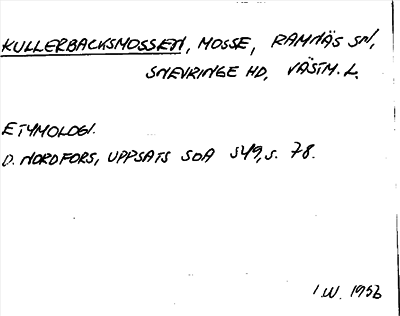 KULLERBACKSMOSSEN, MOSSE, RAMNÄS SN,
SNEVRINGE HD, VÄSTM. L.
ETYMOLOGI.
D. NORDFORS, UPPSATS SOA 549, S. 78.
I.W. 1956